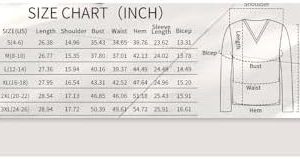 SIZE CHART (INCH)
SIZE(US) Length Shoulder Bust Waist Hem Sleeve Length Bicep
S(4-6) 26.38 14.96 35.43 34.65 39.76 23.62 13.31
M(8-10) 26.77 15.35 37.80 37.01 42.13 24.02 13.78
L(12-14) 27.36 15.94 40.16 39.37 44.49 24.49
XL(16-18) 27.95 16.54 43.31 42.52 47.64 24.96 15.20
2XL(20-22) 28.54 17.13 46.85 46.06 25.43 15.91
3XL(24-26) 28.94 17.72 50.39 49.61 54.72 25.91 16.61
Shoulder
Length
Bicep
Bust
Waist
Hem